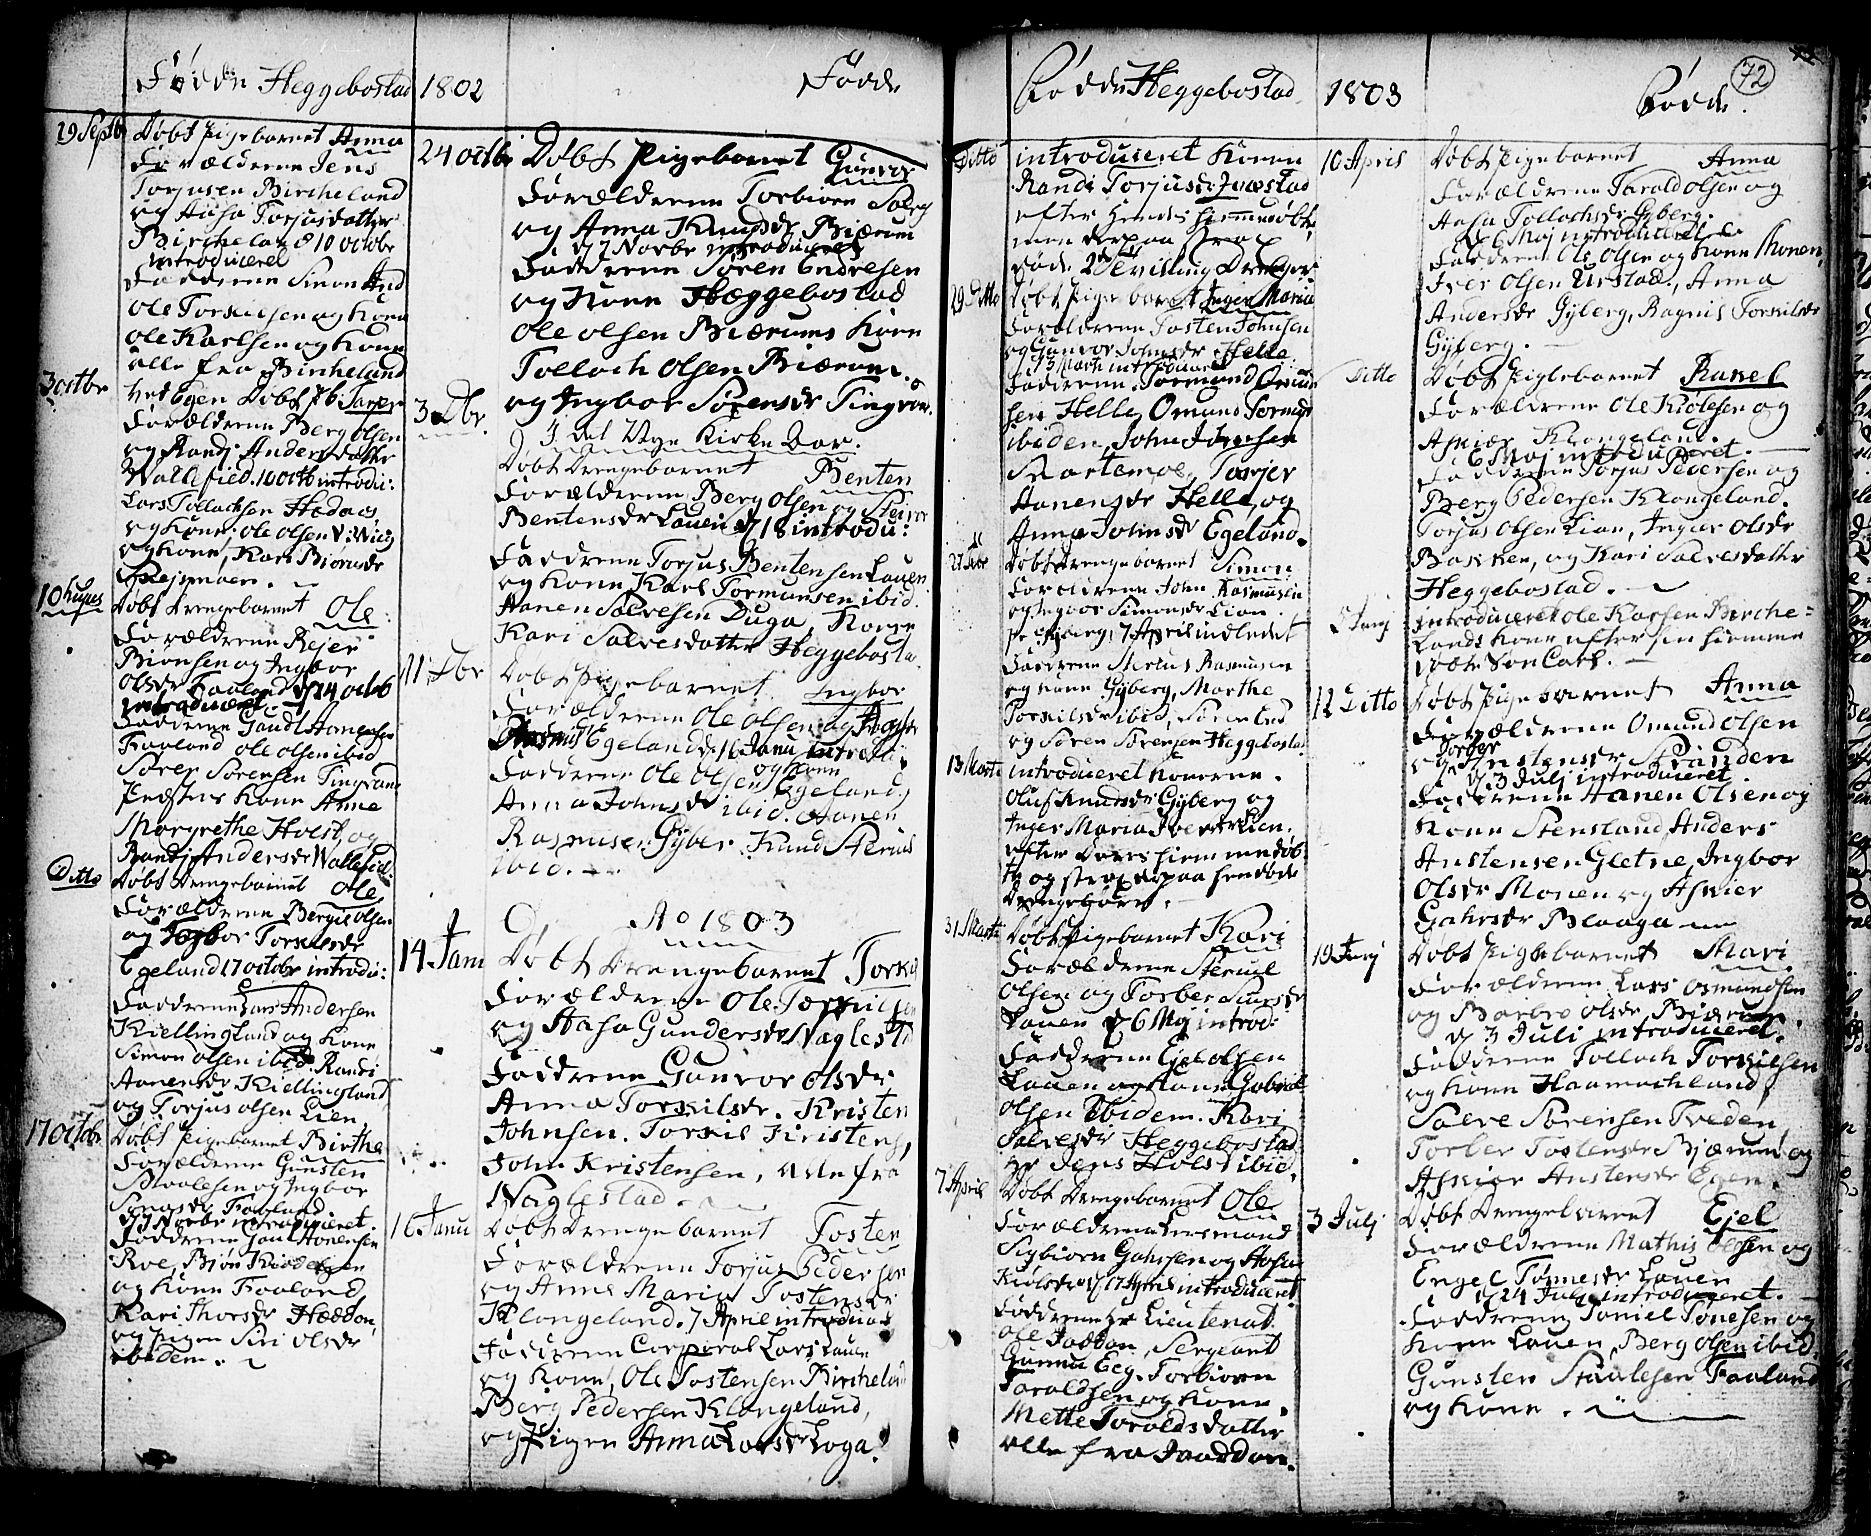 Fødde Heggebostad 1802 Fødde
29 Septb Døbt Pigebarnet Anna
Forældrene Jens
Torjusen Bircheland
og Aasa Torjusdatter
Bircheland d 10 octobr
introduceret
Fadderne Simon And
Ole Torkilsen og Kone
Ole Karlsen og Kone
alle fra Bircheland
3 octbr
Forældrene Berg Olsen
og Randi Andersdatter
Wallefied. 10 octb introdu:
Lars Tollachsen
og Kone, Ole Olsen
og Kone, Kari Biørnsdr
10 hujus Døbt Drengebarnet Ole
Forældrene Rejer
Biørnsen og Ingbor
Olsdr Faaland d 24 octob
introduceret.
Fadderne Gault Aanensen
Faaland Ole Olsen ibid
Søren Sørensen Tingvan
Præstens Kone Anne
Margrethe Holst, og
Randj Andersdr Wallefied.
Ditto Døbt Drengebarnet Ole
Forældrene Bergie Olsen
og Ingbor Torkelsdr
Egeland 17 octobr introdu:
Fadderne Lars Andersen
Kiellingland og Kone
Simon Olsen ibid. Randi
Aanensdr Kiellingland
og Torjus Olsen Lien
17 octobr Døbt Pigebarnet Birthe
Forældrene Gunsten
Staalesen og Ingbor
Faaland
d 7 Novbr introduceret.
Fadderne Gault Aanensen
Roe, Biørn
og Kone Faaland
Kari Thorsdr Hæddon
og Pigen Siri Olsdr
ibidem.
24 octbr Døbt Pigebarnet Gunvor
Forældrene Torbiørn Solvg
og Anna Knudsdr Biærum
d 7 Novbr introduceret
Fadderne Søren Endresen
og Kone Hæggebostad
Ole Olsen Biærums Kone
Tolloch Olsen Biærum
og Ingbor Sørensdr Tingvan.
3 Dbr. I det Nye Kirke Aar.
Døbt Drengebarnet Benten
Forældrene Berg Olsen og
Bentensdr Lauen d 18 introdu:
Fadderne Torjus Bentensen Lauen
og Kone, Karl Tormunsen ibid.
Aanen Salvesen Duga,
Kari Salvesdatter Heggebosta
11 Dbr Døbt Pigebarnet Ingbor
Forældrene Ole Olsen og
Egeland d 16 Janu introdu
og Kone
Fadderne Ole Olsen Egeland,
Anna Johnsdr ibid. Aanen
Rasmusen Gyber. Knud
ibid.
Ao 1803
14 Janu Døbt Drengebarnet Torkil
Forældrene Ole Torkilsen
og Aasa Gundersdr Naglestd
Fadderne Gunvor Olsdr
Anna Torkilsdr. Kristen
Johnsen. Torkil Kristens,
John Kristensen, alle fra
Naglestad.
16 Janu Døbt Drengebarnet Tosten
Forældrene Torjus Pedersen
og Anne Maria Tostensdr
Klongeland. 7 April introduc
Fadderne Corporal Lars Lauen
og Kone, Ole Tostensen Bircheland
Berg Pedersen Klongeland,
og Pigen Anna Larsdr Loga.
Fødde Heggebostad 1803 Fødde. 72
Ditto introduceret Konen
Randi Torjusdr
efter hendes hiemmedøbte
men derpaa strax
døde 2de Tvilling Drenger
29 Ditto Døbt Pigebarnet Inger Maria
Forældrene Tosten Johnsen
og Gunvor Johnsdr Helle
d 13 Marti introduc
Fadderne Tormund Omun
sen Helle, Omund Torms
ibidem, John Iversen
Snartemoe, Torjer
Aanensdr Helle, og
Anna Johnsdr Egeland.
27 Febr Døbt Drengebarnet Simon
Forældrene John Rasmusen
og Ingbor Simonsdr Lien
Gyberg, 7 April indledet
Fadderne Rasmusen
og Kone Gyberg, Marthe
Torkilsdr ibid,
og Søren Sørensen Heggebostad
13 Marti introduceret Konerne.
Oluf Knudsdr Gyberg og
Inger Maria Iversdr Lien,
efter deres hiemmedøb
te og strax derpaa hendøde
Drengebørn.
31 Marti Døbt Pigebarnet Kari
Forældrene
Olsen og Torber
Lauen d 6 Maj introd:
Fadderne Ejel Olsen
Lauen og Kone Gabriel
Olsen ibidem. Kari
Salvesdr Heggebostad
Hr Jens Holst ibid.
7 April Døbt Drengebarnet Ole
Forældrene Lensmand
Sigbiørn Gahrsen og Aasa
Kiølsdr d 17 April introduceret.
Fadderne Hr Lieutenat
Ole Joddon, Sergeant
Gunnu Eeg. Torbiørn
Taroldsen og Kone,
Mette Toroldsdatter
alle fra
10 April Døbt Pigebarnet Anna
Forældrene Tarald Olsen og
Aasa Tollachsdr Gyberg.
d 6 Maj introduceret
Fadderne Ole Olsen og Kone Monen,
Iver Olsen Urstad, Anna
Andersdr Gyberg, Ragnil Torkilsdr
Gyberg.
Ditto Døbt Pigebarnet Ranel
Forældrene Ole Kiølesen og
Asmier Klongeland.
6 Maj introduceret.
Fadderne Torjus Pedersen og
Berg Pedersen Klongeland.
Torjus Olsen Lian, Ingar Olsdr
Bakken, og Kari Salvesdatter
Heggebostad.
2 Junj introduceret Ole Karlsen Birche=
lands Kone efter sin hiemme
døbte Søn Carl.
12 Ditto Døbt Pigebarnet Anna
Forældrene Omund Olsen
og Torber Anstensdr Stranden
d 3 Julj introduceret.
Fadderne Aanen Olsen og
Kone Stensland, Anders
Anstensen Gletne, Ingbor
Olsdr Monen og Asmier
Gahrsdr Blaaga
19 Junj Døbt Pigebarnet Mari
Forældrene Lars Osmundsen
og Barbro Olsdr Biærum.
d 3 Juli introduceret.
Fadderne Tolloch Torkilsen
og Kone Haamochland,
Salve Sørensen Tveden,
Torber Tostensdr Bjærum og
Asmier Anstensdr Egen.
3 Julj Døbt Drengebarnet Ejel
Forældrene Mathis Olsen og
Engel Tønnesdr Lauen
d 24 Julj introduceret.
Fadderne Daniel Tønesen og
Kone Lauen, Berg Olsen ibid
Gunsten Staalesen Faaland
og Kone.